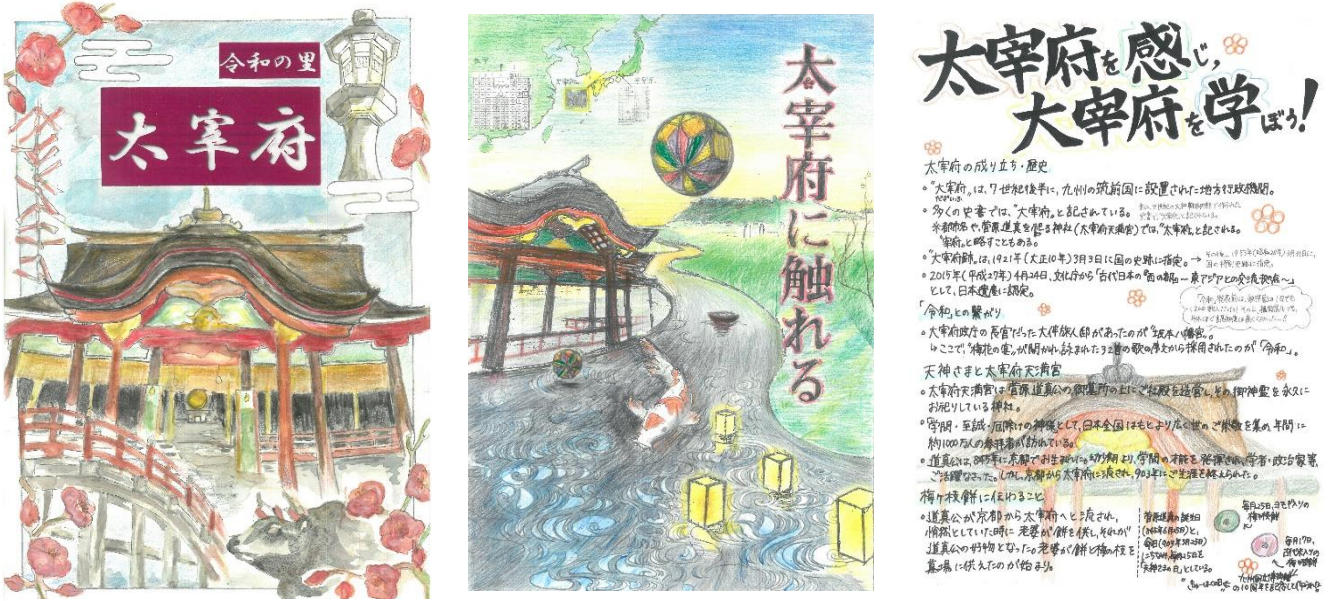 令和の里
太宰府
太宰府に触れる
太宰府を感じ,
大宰府を学ぼう!
太宰府の成り立ち・歴史
。"大宰府"は、7世紀後半に、九州の筑前国に設置された地方行政機関。
。多くの史書では、"大宰府"と記されている。
都市名や、菅原道真を祀る神社(太宰府天満宮)では、"太宰府"と記される。
"宰府"と略すこともある。
。"大宰府跡"は、1921年(大正10年)3月3日に国の史跡に指定。→
。2015年(平成27年)4月24日、文化庁から「古代日本の『西の都』~東アジアとの交流拠点~」
として、日本遺産に認定。
「令和」との繋がり
。大宰府政庁の長官だった大伴旅人邸があったのが"坂本八幡宮"。
↳ここで、"梅花の宴"が開かれ、詠まれた32首の歌の序文から採用されたのが「令和」。
天神さまと太宰府天満宮
。太宰府天満宮は菅原道真公の御墓所の上にご社殿を造営し、その御神霊を永久に
お祀りしている神社。
。「学問・至誠・厄除けの神様」として、日本全国はもとより広く世のご崇敬を集め、年間に
約1000万人の参拝者が訪れている。
。道真公は、845年に京都でお生まれに。幼少期より、学問の才能を発揮され、学者・政治家等、
ご活躍なさった。しかし、京都から太宰府に流され、903年にご生涯を終えられた。
梅ヶ枝餅に伝わること
。道真公が京都から太宰府へと流され、
悄然としていた時に老婆が餅を供し、それが
道真公の好物となった。老婆が餅と梅の枝を
墓場に供えたのが始まり。
菅原道真の誕生日
(845年6月25日)と、
命日(903年3月25日)
にちなみ、毎月25日を
"天神さまの日"としている。
毎月25日、ヨモギ入りの
梅ヶ枝餅
毎月17日、
古代米入りの
梅ヶ枝餅